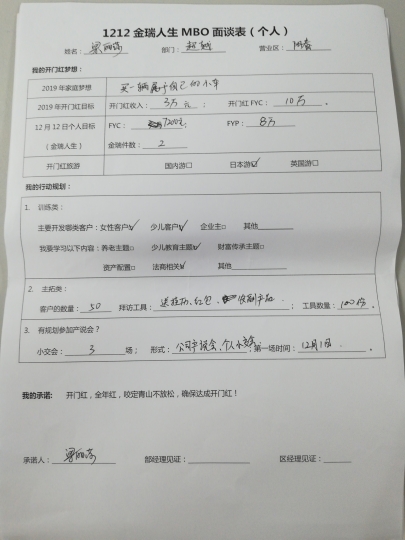 1212 金瑞人生 MBO 面谈表（个人）
姓名： 部门： 超越 营业区： 阳春
我的开门红梦想：
2019 年家庭梦想 买一辆属于自己的小车
2019 年开门红目标 开门红收入：3万元； 开门红 FYC： 10万 。
12 月 12 日个人目标 FYC： 7200元； FYP： 8万
（金瑞人生） 金瑞件数： 2
开门红旅游 国内游□ 日本游☑ 英国游□
我的行动规划：
1. 训练类：
主要开发哪类客户：女性客户☑ 少儿客户☑ 企业主□ 其他
我要学习以下内容：养老主题□ 少儿教育主题☑ 财富传承主题□
资产配置□ 法商相关☑ 其他
2. 主拓类：
客户的数量： 50 拜访工具： 送挂历、红包、 ；工具数量： 100份 。
3. 有规划参加产说会？
小交会： 3 场； 形式： 公司产说会、个人 ；第一场时间： 12月1日 。
我的承诺： 开门红，全年红，咬定青山不放松，确保达成开门红！
承诺人： 部经理见证： 区经理见证：